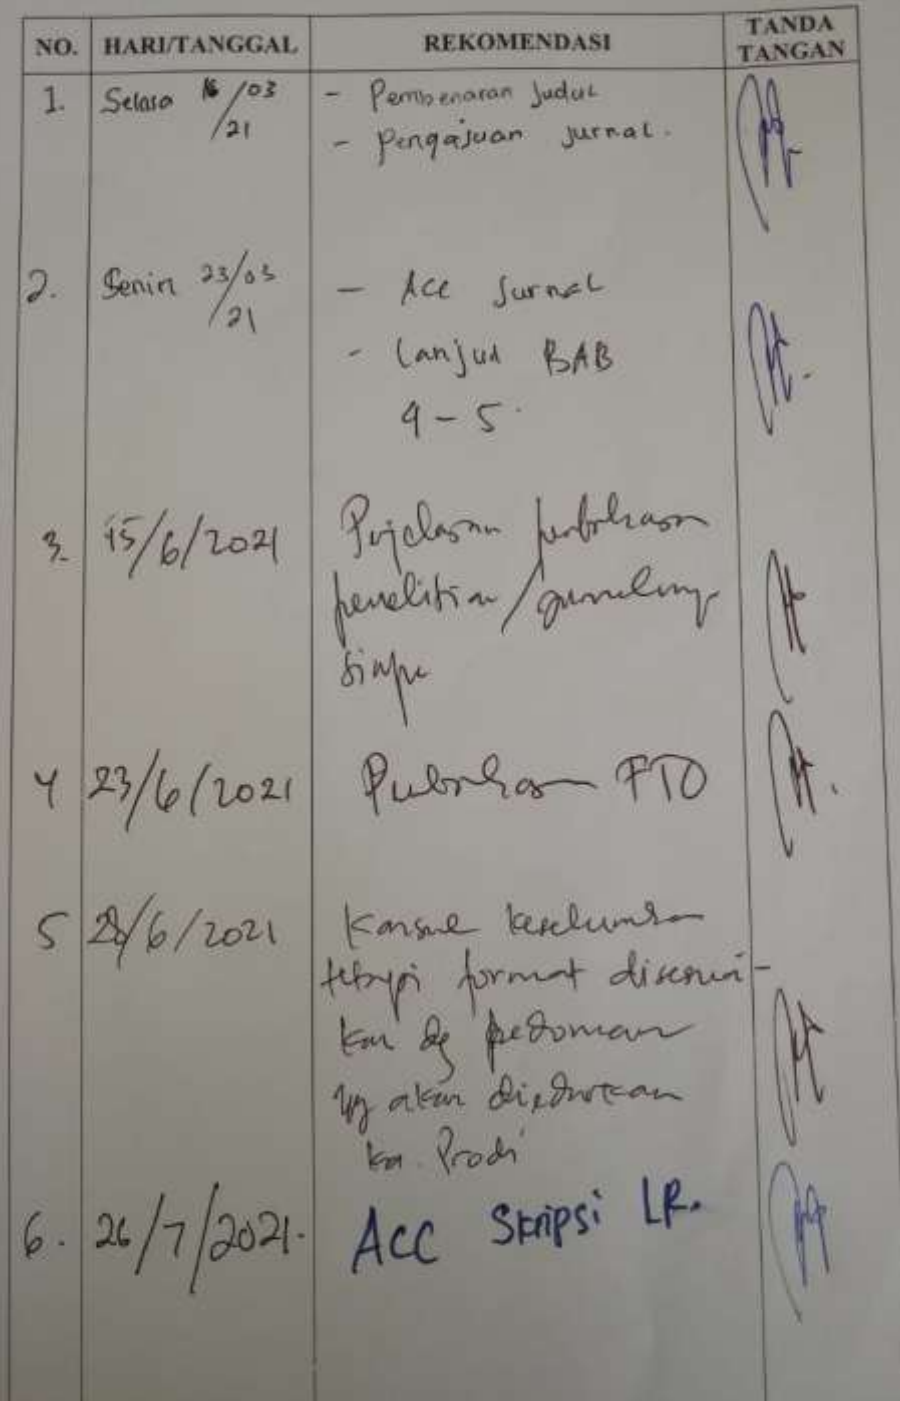 NO. HARI/TANGGAL REKOMENDASI TANDA TANGAN
1. Selasa 16/03/21 - Pembenaran Judul
- Pengajuan jurnal.
2. Senin 23/03/21 - Acc Jurnal
- Lanjut BAB
4-5.
3. 15/6/2021 Penjelasan
penelitian /
4 23/6/2021 FTO
5 28/6/2021 Konsul keseluruhan
tetapi format disesuai-
kan dg pedoman
yg akan diedarkan
ka. Prodi
6. 26/7/2021. ACC Skripsi LR.